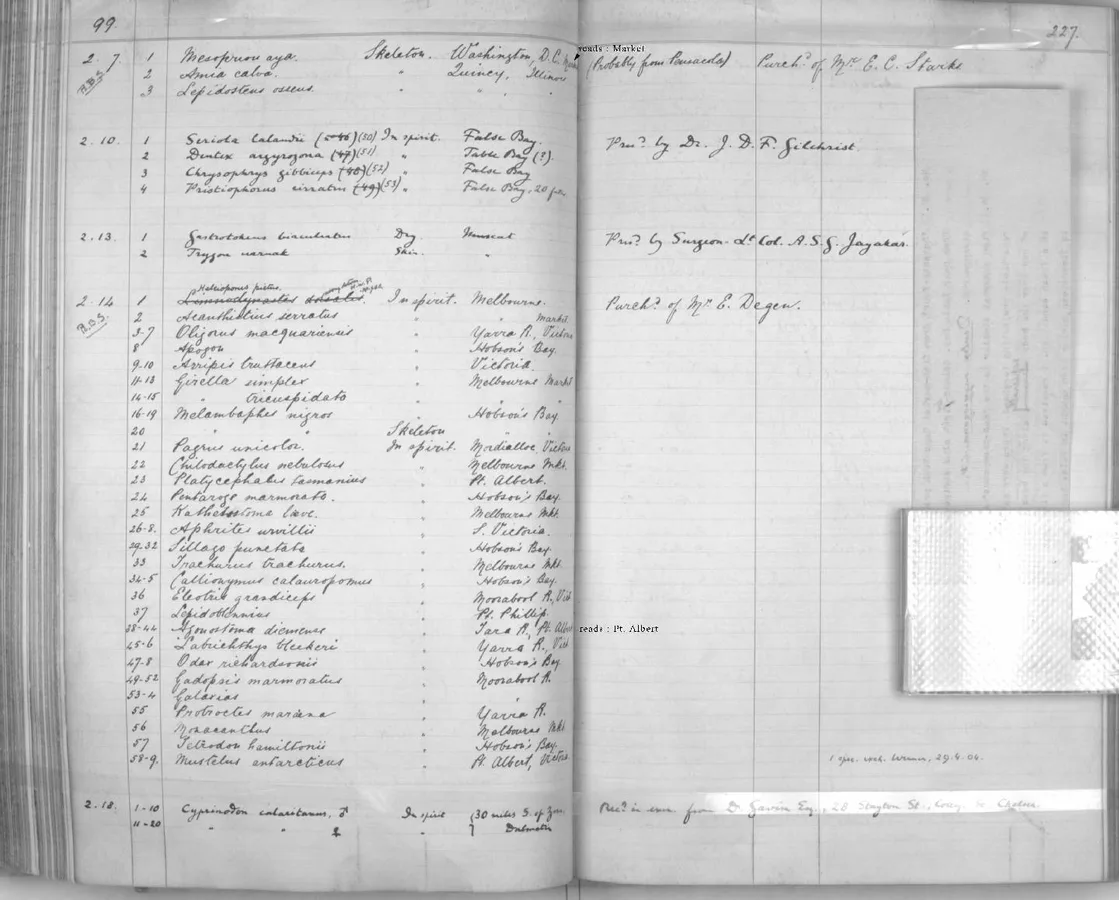 99
227.
reads : Market
2. 7. 1 Mesoprion aya. Skeleton. Washington, D.C. (Probably from Pensacola) Purchd. of Mr E. C. Starks
R.B.S. 2 Amia calva. " Quincy, Illinois
3 Lepidosteus osseus. " " "
2. 10. 1 Seriola lalandii (50) In spirit. False Bay. Presd. by Dr. J. D. F. Gilchrist.
2 Dentex argyrozona (47) (51) " Table Bay (?).
3 Chrysophrys gibbiceps (48) (52) " False Bay
4 Pristiophorus cirratus (49) (53) " False Bay, 20
2. 13. 1 Gastrotokeus biaculeatus Dry. Muscat Presd. by Surgeon-Lt Col. A. S. G. Jayakar.
2 Trygon uarnak Skin. "
Heleioporus pictus.
2. 14 1 Limnodynastes dorsalis. In spirit. Melbourne. Purchd. of Mr E. Degen.
R.B.S. 2 Acanthistius serratus " " market
3-7 Oligorus macquariensis " Yarra R., Victoria
8 Apogon " Hobson's Bay.
9-10 Arripis truttaceus " Victoria.
11-13 Girella simplex " Melbourne Market
14-15 " tricuspidata " " "
16-19 Melambaphes nigros " Hobson's Bay.
20 " " Skeleton
21 Pagrus unicolor. In spirit. Mordialloc, Victoria
22 Chilodactylus nebulosus " Melbourne Mkt.
23 Platycephalus tasmanius " Pt. Albert.
24 Pentaroge marmorata. " Hobson's Bay.
25 Kathetostoma læve. " Melbourne Mkt.
26-8. Aphrites urvillii " S. Victoria.
29-32 Sillago punctata " Hobson's Bay.
33 Trachurus trachurus. " Melbourne Mkt.
34-5 Callionymus calauropomus " Hobson's Bay.
36 Eleotris grandiceps " Moorabool R., Vict
37 Lepidoblennius " Pt. Phillip.
38-44 Agonostoma diemensis " Tara R., Pt. Albert reads : Pt. Albert
45-6 Labrichthys bleekeri " Yarra R., Vict
47-8 Odax richardsonii " Hobson's Bay
49-52 Gadopsis marmoratus " Moorabool R.
53-4 Galaxias " "
55 Protroctes maræna " Yarra R.
56 Monacanthus " Melbourne Mkt.
57 Tetrodon hamiltonii " Hobson's Bay.
58-9. Mustelus antarcticus " Pt. Albert, Victoria 1 spec. exch. Werner, 29.4.04.
2. 18. 1-10 Cyprinodon calaritanus, ♂ In spirit (30 miles S. of Zara, Recd in exch. from D. Gavin Esq., 28 Stayton St., Chelsea
11-20 " " ♀ " } Dalmatia